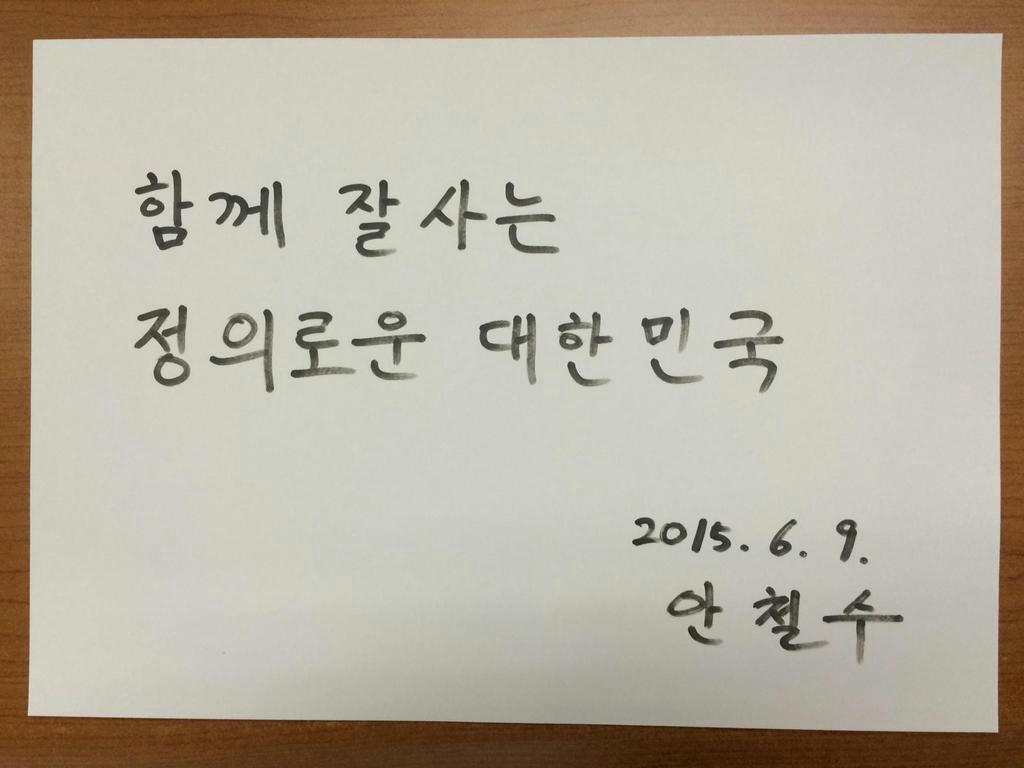 함께 잘사는
정의로운 대한민국
2015. 6. 9.
안철수